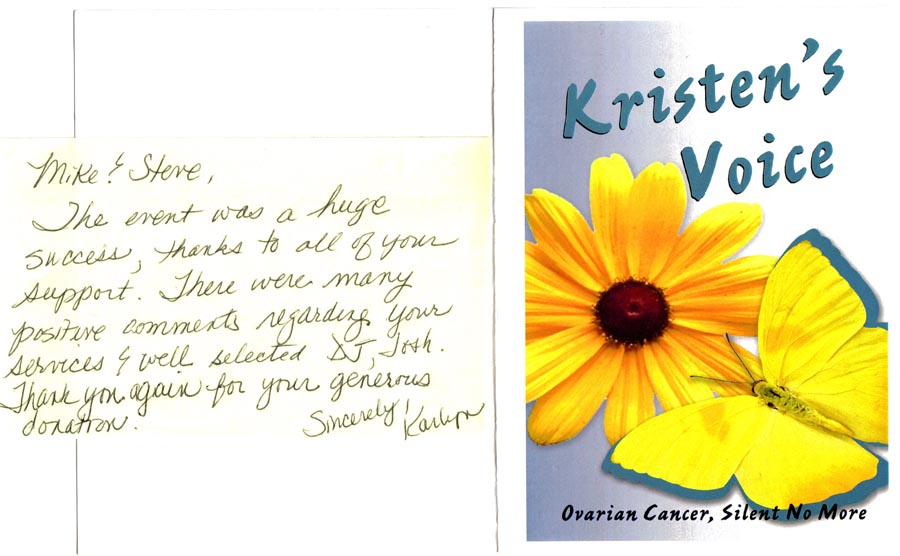 Mike & Steve,
The event was a huge
success, thanks to all of your
support. There were many
positive comments regarding your
services & well selected DJ, Josh.
Thank you again for your generous
donation.
Sincerely,
Karlyn
Kristen's
Voice
Ovarian Cancer, Silent No More